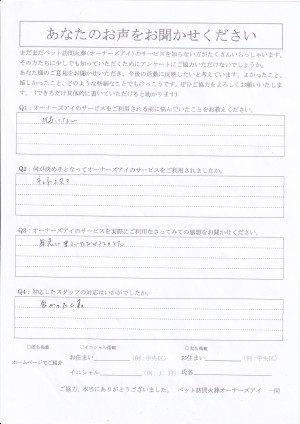 あなたのお声をお聞かせください
まだまだペット訪問火葬(オーナーズアイ)のサービスを知らない方がたくさんいらっしゃいます。
その方たちに少しでも知っていただくためにアンケートにご協力いただけないでしょうか。
あなた様のご意見をお聞かせいただき、今後の活動に反映したいと考えています。よかったこと、
厳しかったこと、どのような些細なことでもけっこうです。ぜひご協力をよろしくお願いいたしま
す。(できるだけ具体的に書いていただけると助かります)
Q1：オーナーズアイのサービスをご利用される前に悩んでいたことをお教えください。
Q2：何が決め手となってオーナーズアイのサービスをご利用されましたか。
ネットを見て
Q3：オーナーズアイのサービスを実際にご利用なさってみての感想をお聞かせください。
Q4：対応したスタッフの対応はいかがでしたか。
良かったですね
□匿名掲載 □イニシャル掲載 □実名掲載
ホームページでご紹介 お住まい (例：中央区) お住まい (例：中央区)
イニシャル (例：J．H) 氏名
ご協力、本当にありがとうございました。 ペット訪問火葬オーナーズアイ 一同